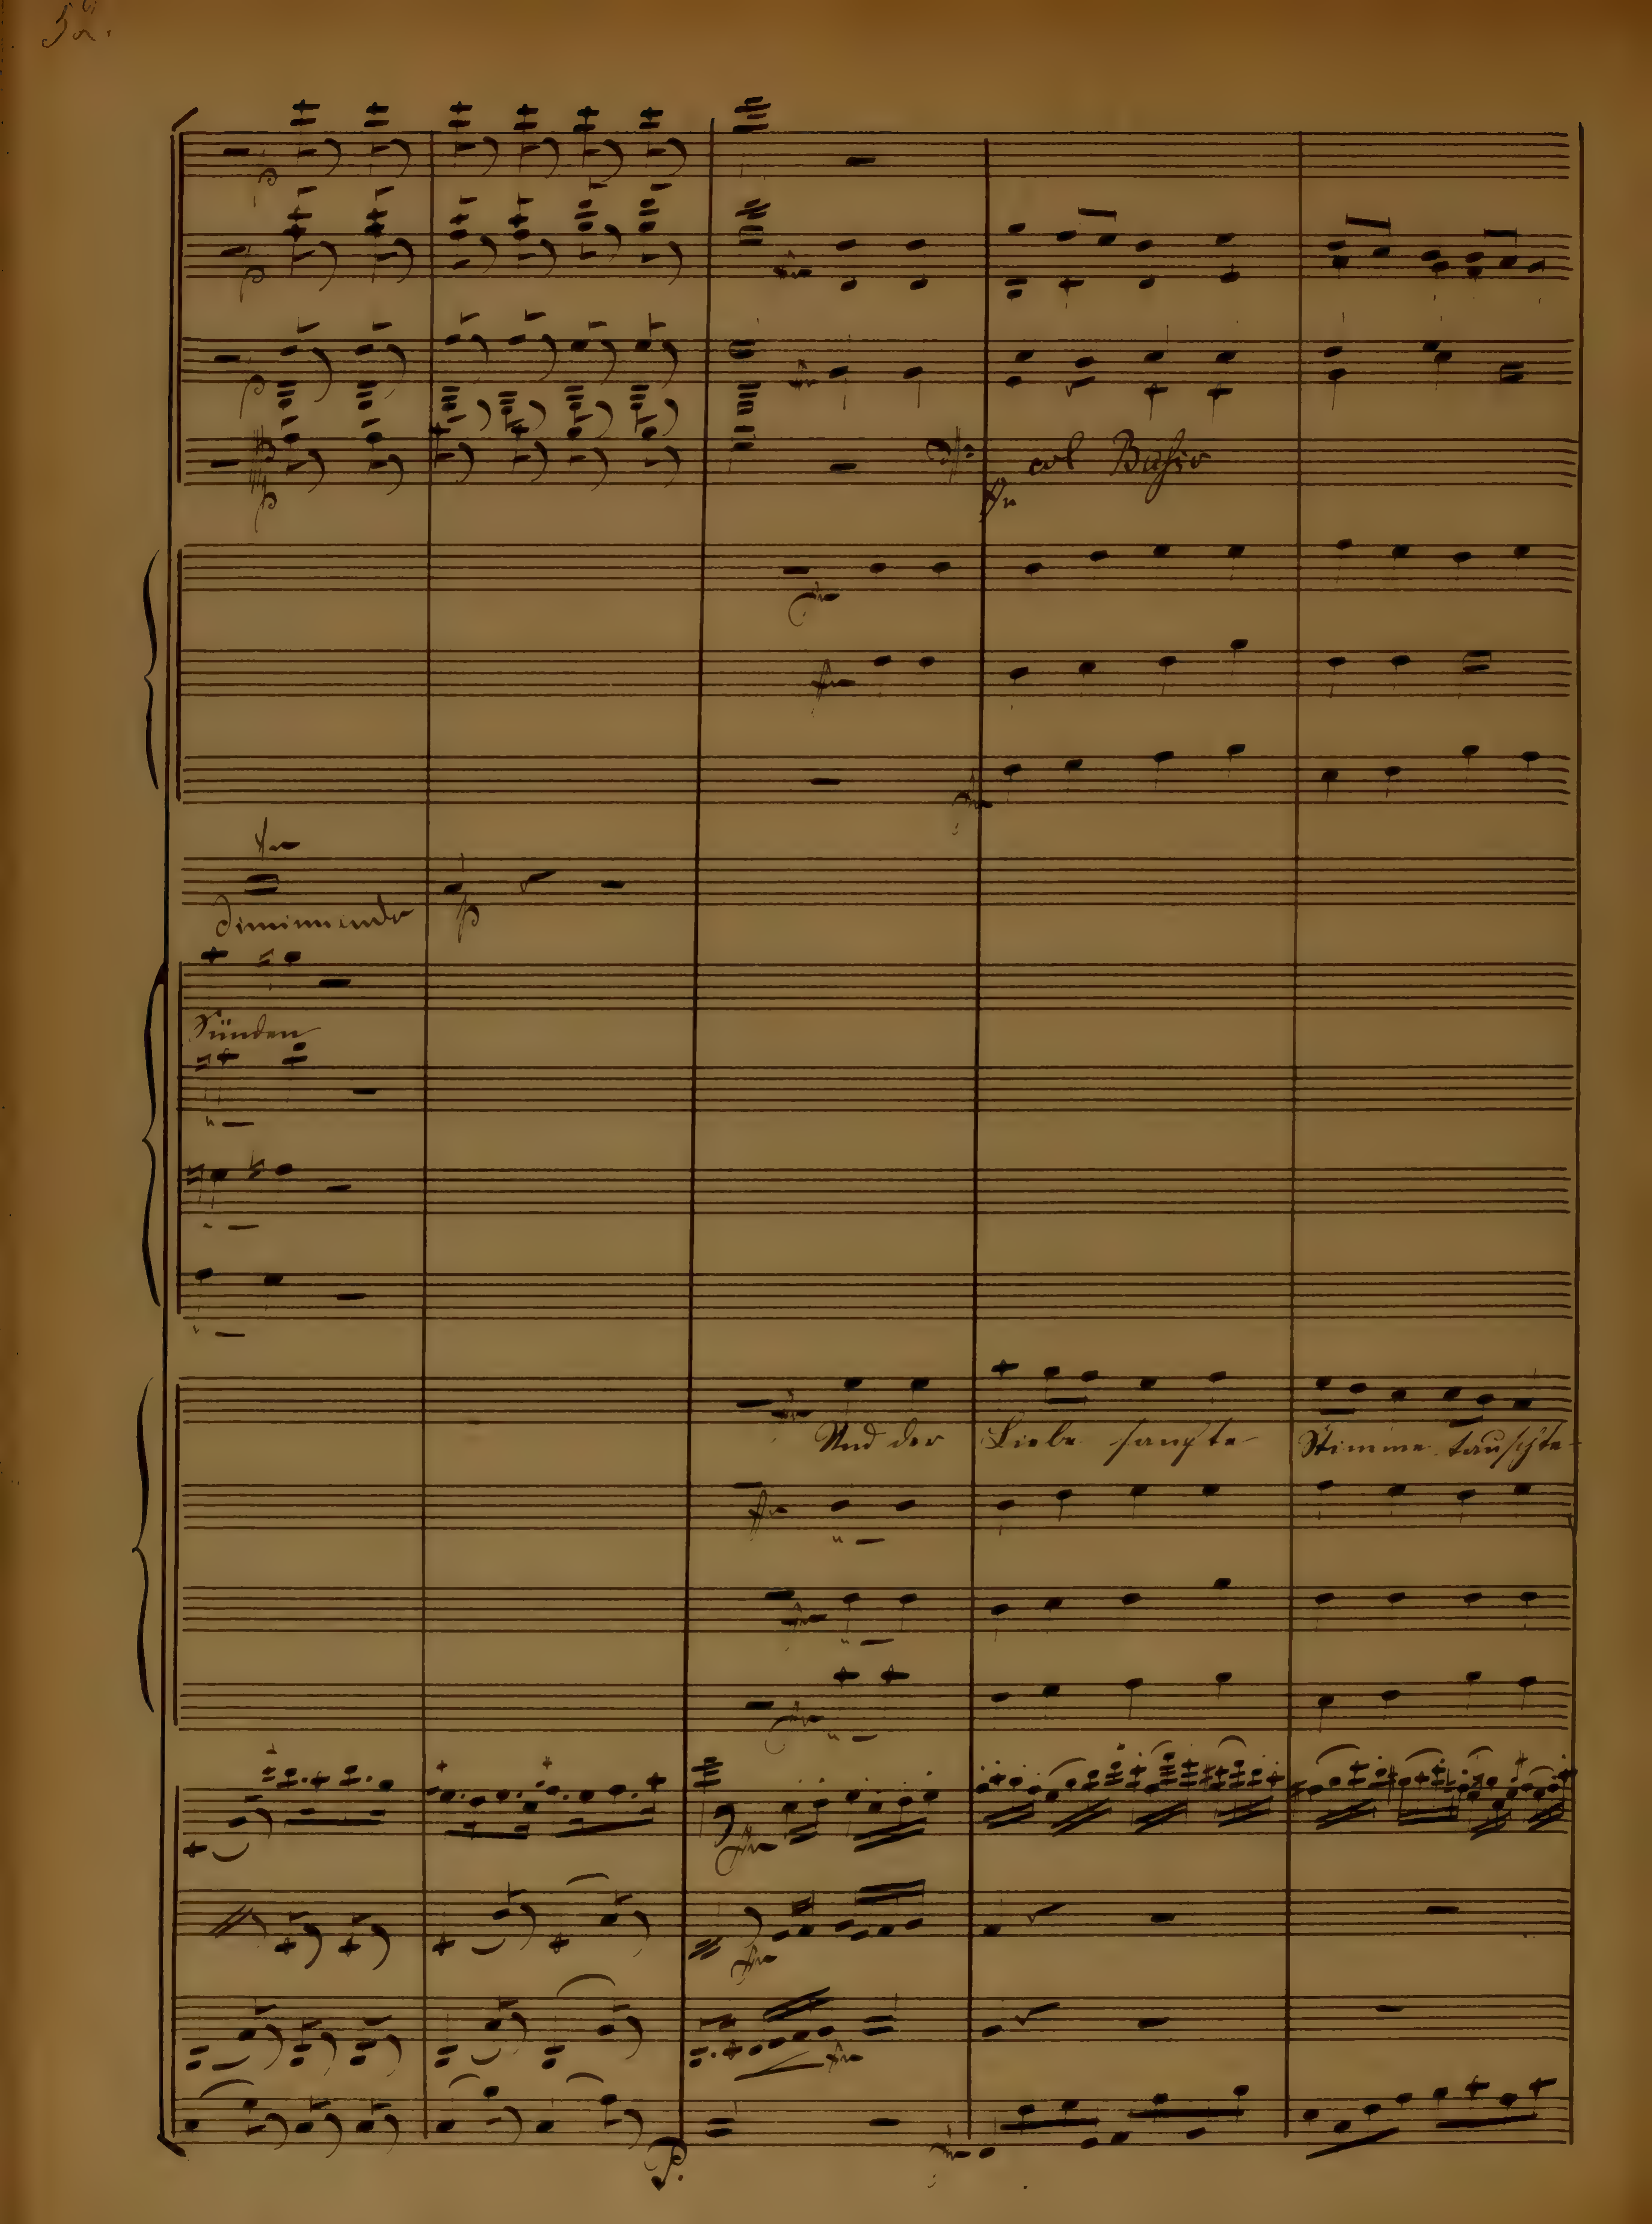 52.
col Basso
diminuendo
Sünden
Und der Liebe sanfte Stimme tauschte